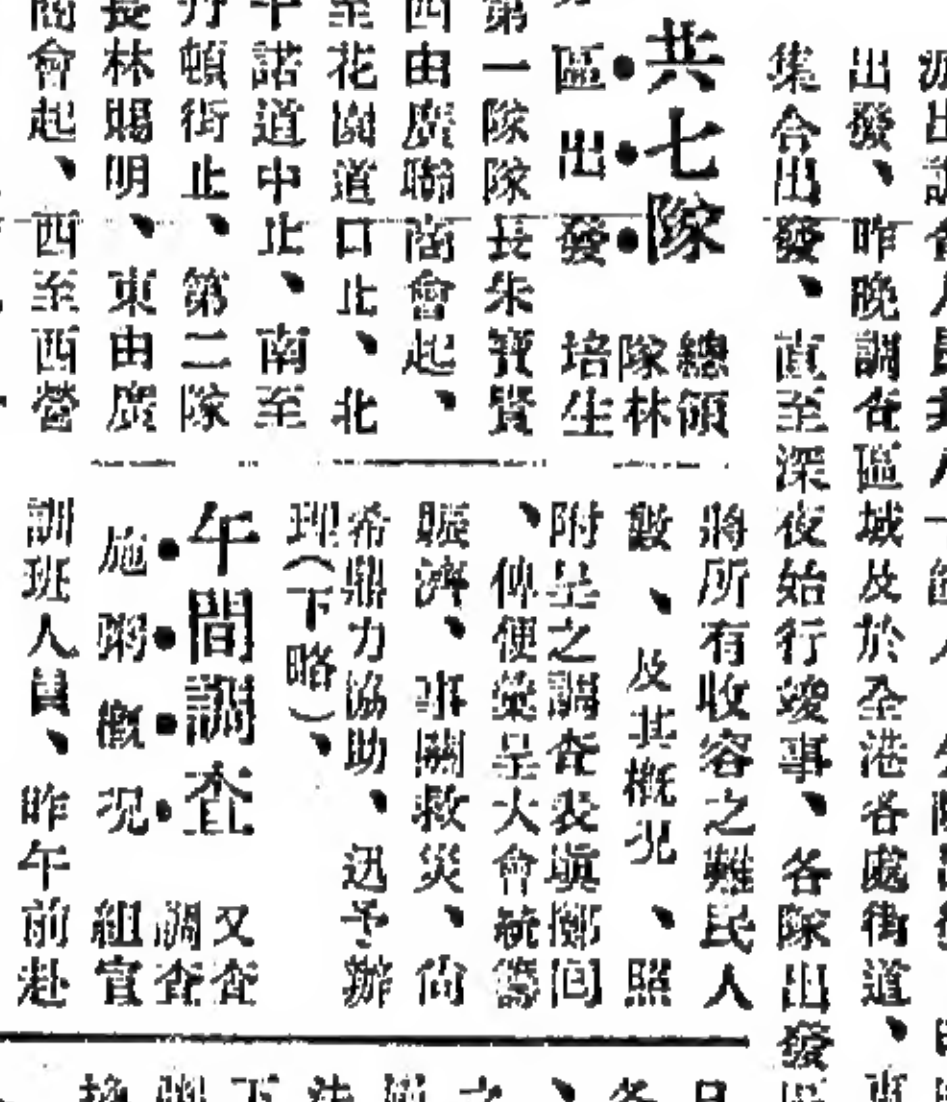 出發、昨晚調查區域及於全港各處街道、
集合出發、直至深夜始行竣事、各隊出發
共七隊
區出發
總領
隊林
培生
第一隊隊長朱寶賢
西由廣聯商會起、
至花園道口止、北
干諾道中止、南至
丹頓街止、第二隊
長林賜明、東由廣
商會起、西至西營
將所有收容之難民人
數、及其概況、照
附呈之調查表塡擲回
、俾便彙呈大會統籌
賑濟、事關救災、尙
希鼎力協助、迅予辦
理(下略)、
午間調查
施粥概況
又查
調查
組官
訓班人員、昨午前赴